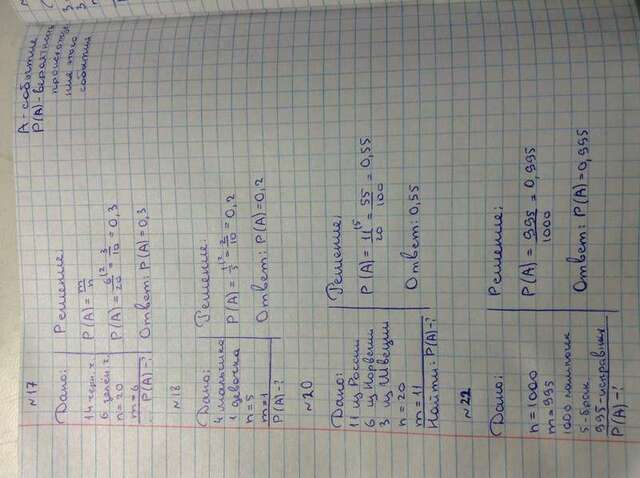 А - событие
P(A) - вероятность
происхожде
ния этого
события
№17
Дано:
14 черн. ч.
6 зелён. ч.
n=20
m=6
P(A)-?
Решение:
P(A)= m/n
P(A)= 6/20 = 3/10 = 0,3
Ответ: P(A)=0,3
№18
Дано:
4 мальчика
1 девочка
n=5
m=1
P(A)-?
Решение:
P(A)= 1/5 = 2/10 = 0,2
Ответ: P(A)=0,2
№20
Дано:
11 из России
6 из Норвегии
3 из Швеции
n=20
m=11
Найти: P(A)-?
Решение:
P(A)= 11/20 = 55/100 = 0,55
Ответ: 0,55
№22
Дано:
n=1000
m=995
1000 лампочек
5-брак.
995-исправных
P(A)-?
Решение:
P(A)= 995/1000 = 0,995
Ответ: P(A)=0,995